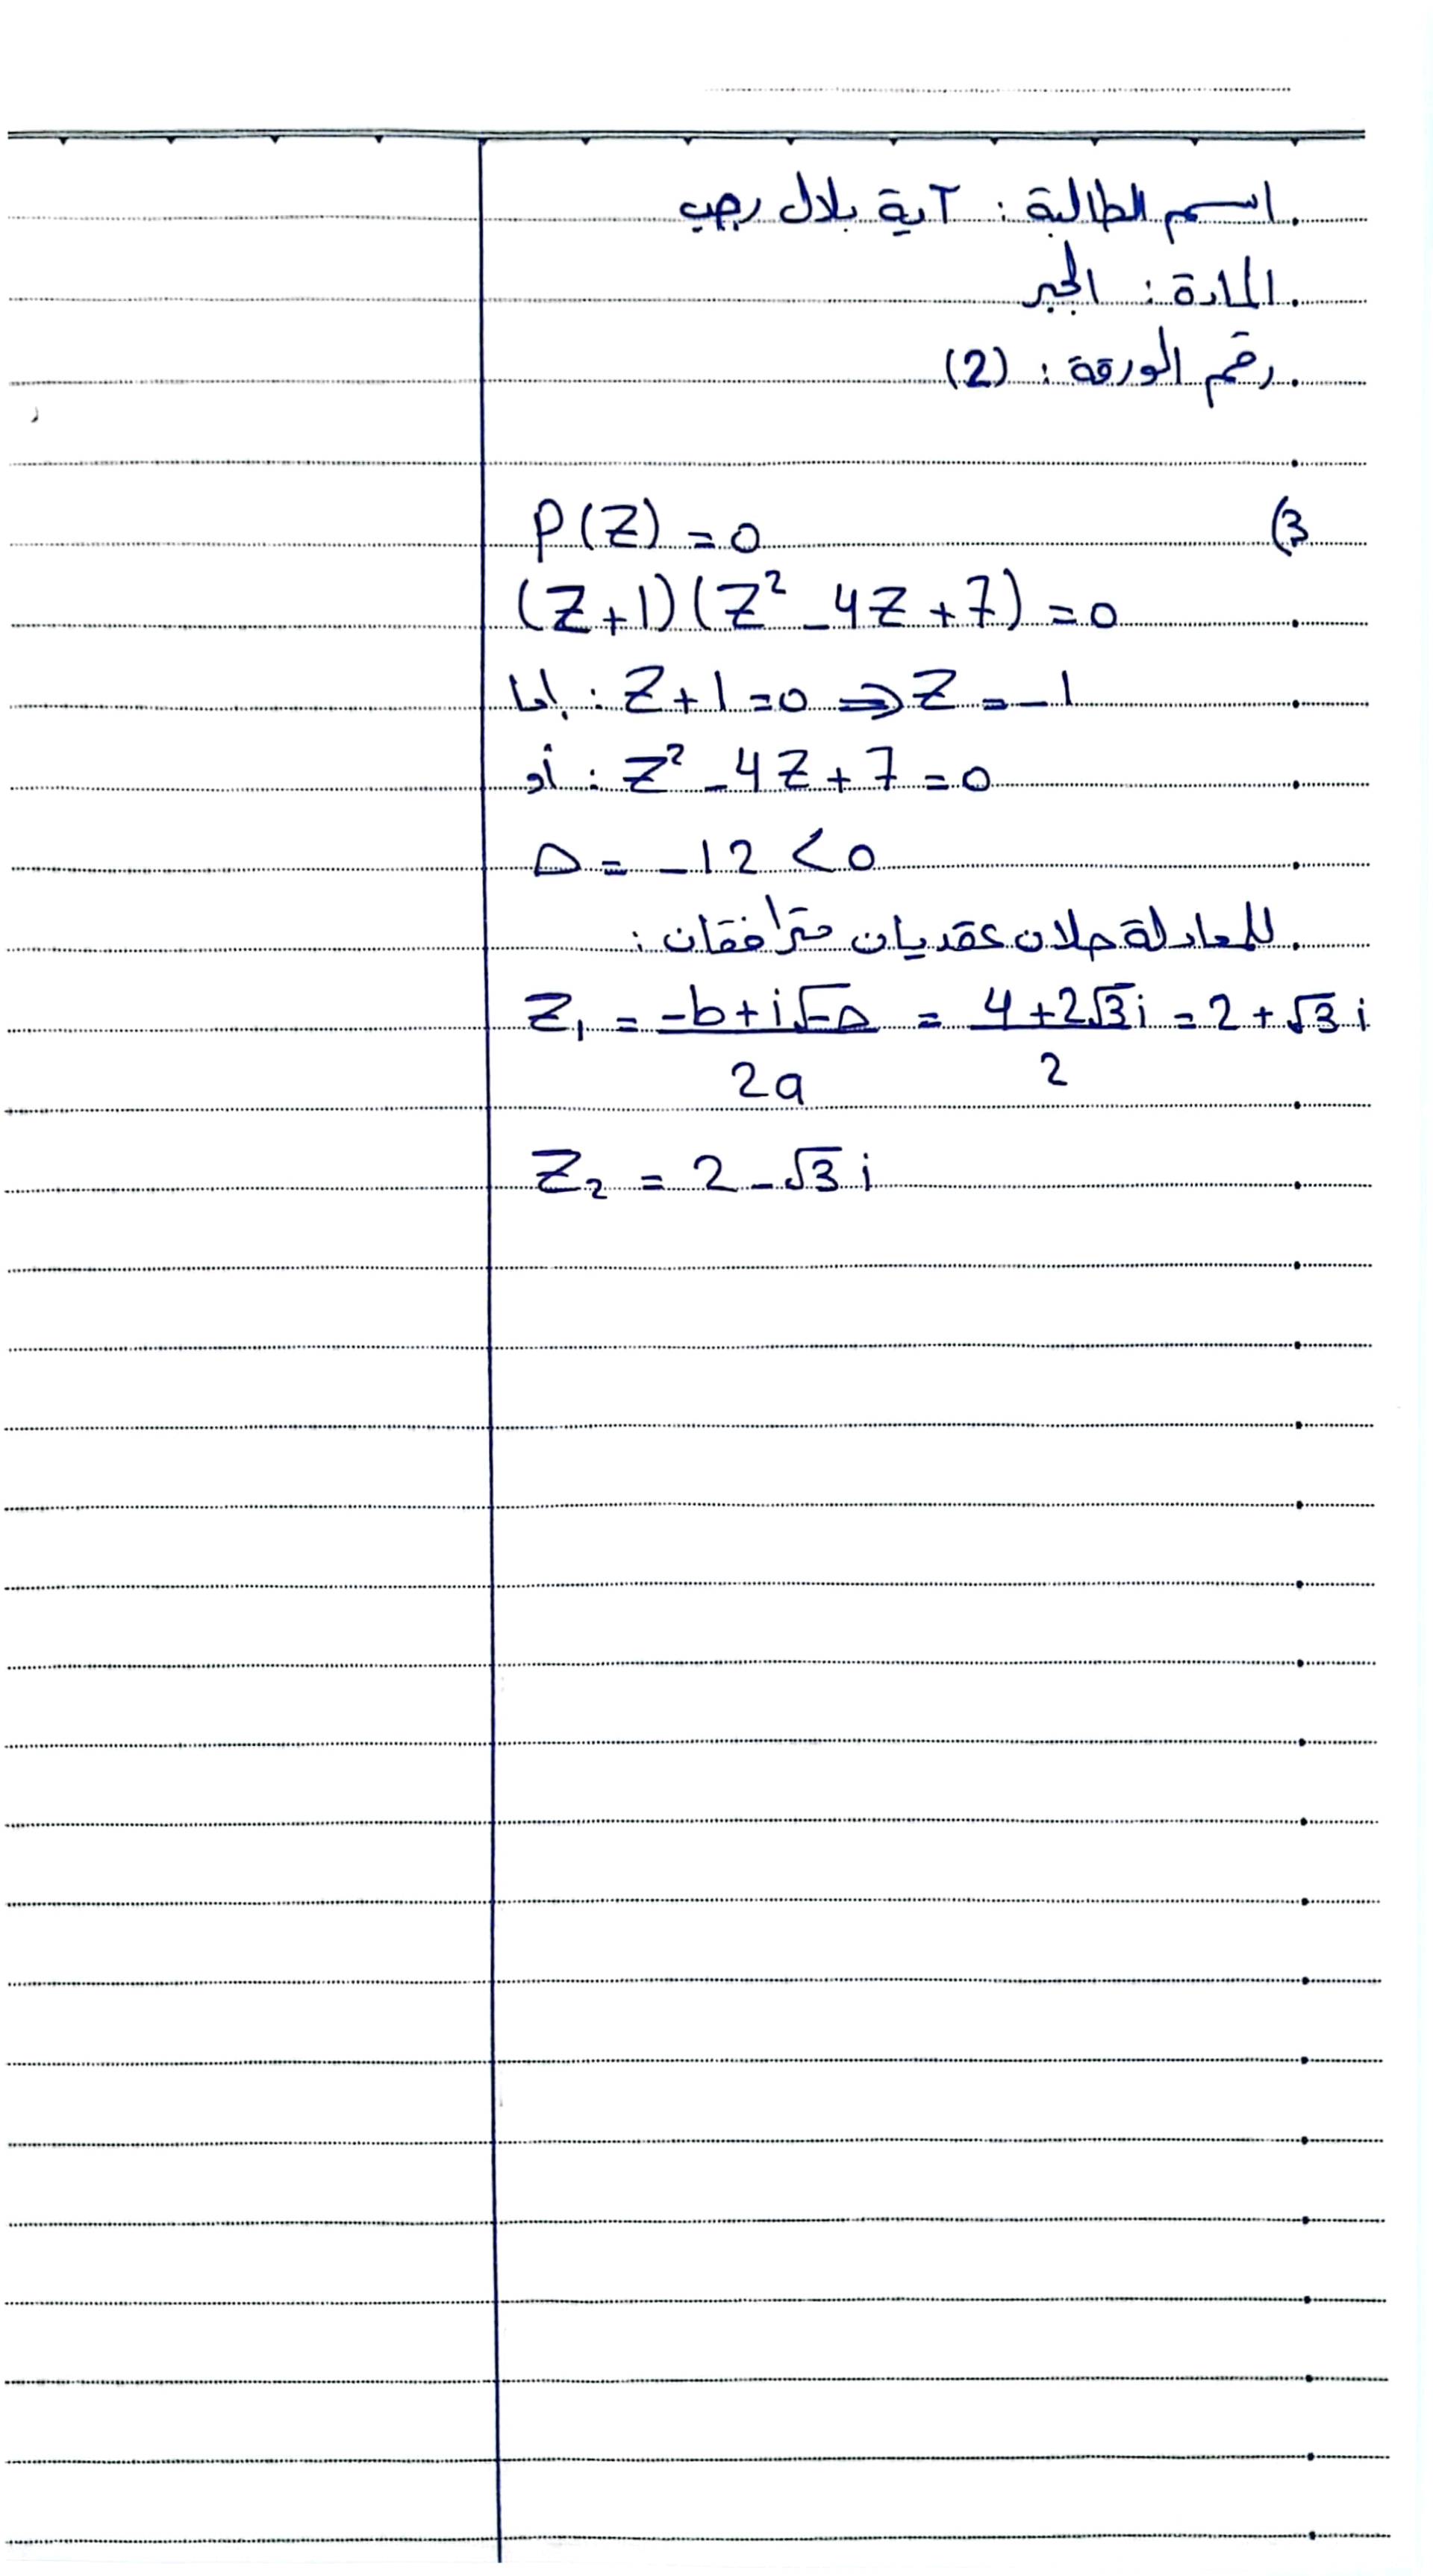 اسم الطالبة : آية بلال رجب
المادة : الجبر
رقم الورقة : (2)
3)
P(Z) = 0
(Z+1)(Z² - 4Z + 7) = 0
إما : Z + 1 = 0 ⇒ Z = -1
أو : Z² - 4Z + 7 = 0
Δ = -12 < 0
للمعادلة حلان عقديان مترافقان :
Z₁ = (-b + i√-Δ)/2a = (4 + 2√3 i)/2 = 2 + √3 i
Z₂ = 2 - √3 i